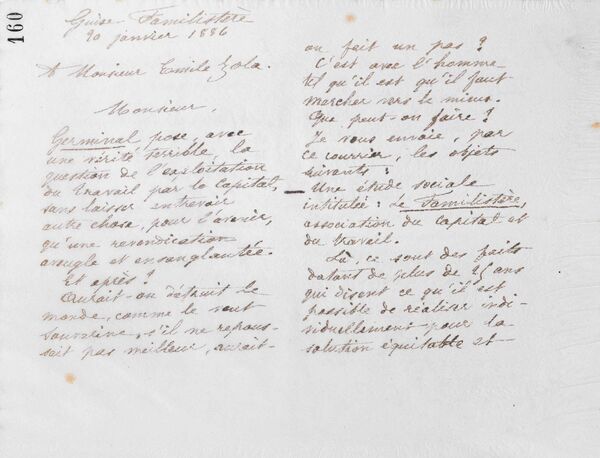 160
Guise-Familistère
20 janvier 1886
A Monsieur Emile Zola.
Monsieur,
Germinal pose, avec
une vérité terrible, la
question de l'exploitation
du travail par le capital,
sans laisser entrevoir
autre chose, pour l'avenir,
qu'une revendication
aveugle et ensanglantée.
Et après ?
Aurait-on détruit le
monde, comme le veut
Souvarine, s'il ne repous-
sait pas meilleur, aurait-
on fait un pas ?
C'est avec l'homme
tel qu'il est qu'il faut
marcher vers le mieux.
Que peut-on faire ?
Je vous envoie, par
ce courrier, les objets
suivants :
Une étude sociale
intitulée : Le Familistère,
association du capital et
du travail.
Là, ce sont des faits
datant de plus de 25 ans
qui disent ce qu'il est
possible de réaliser indi-
viduellement pour la
solution équitable et